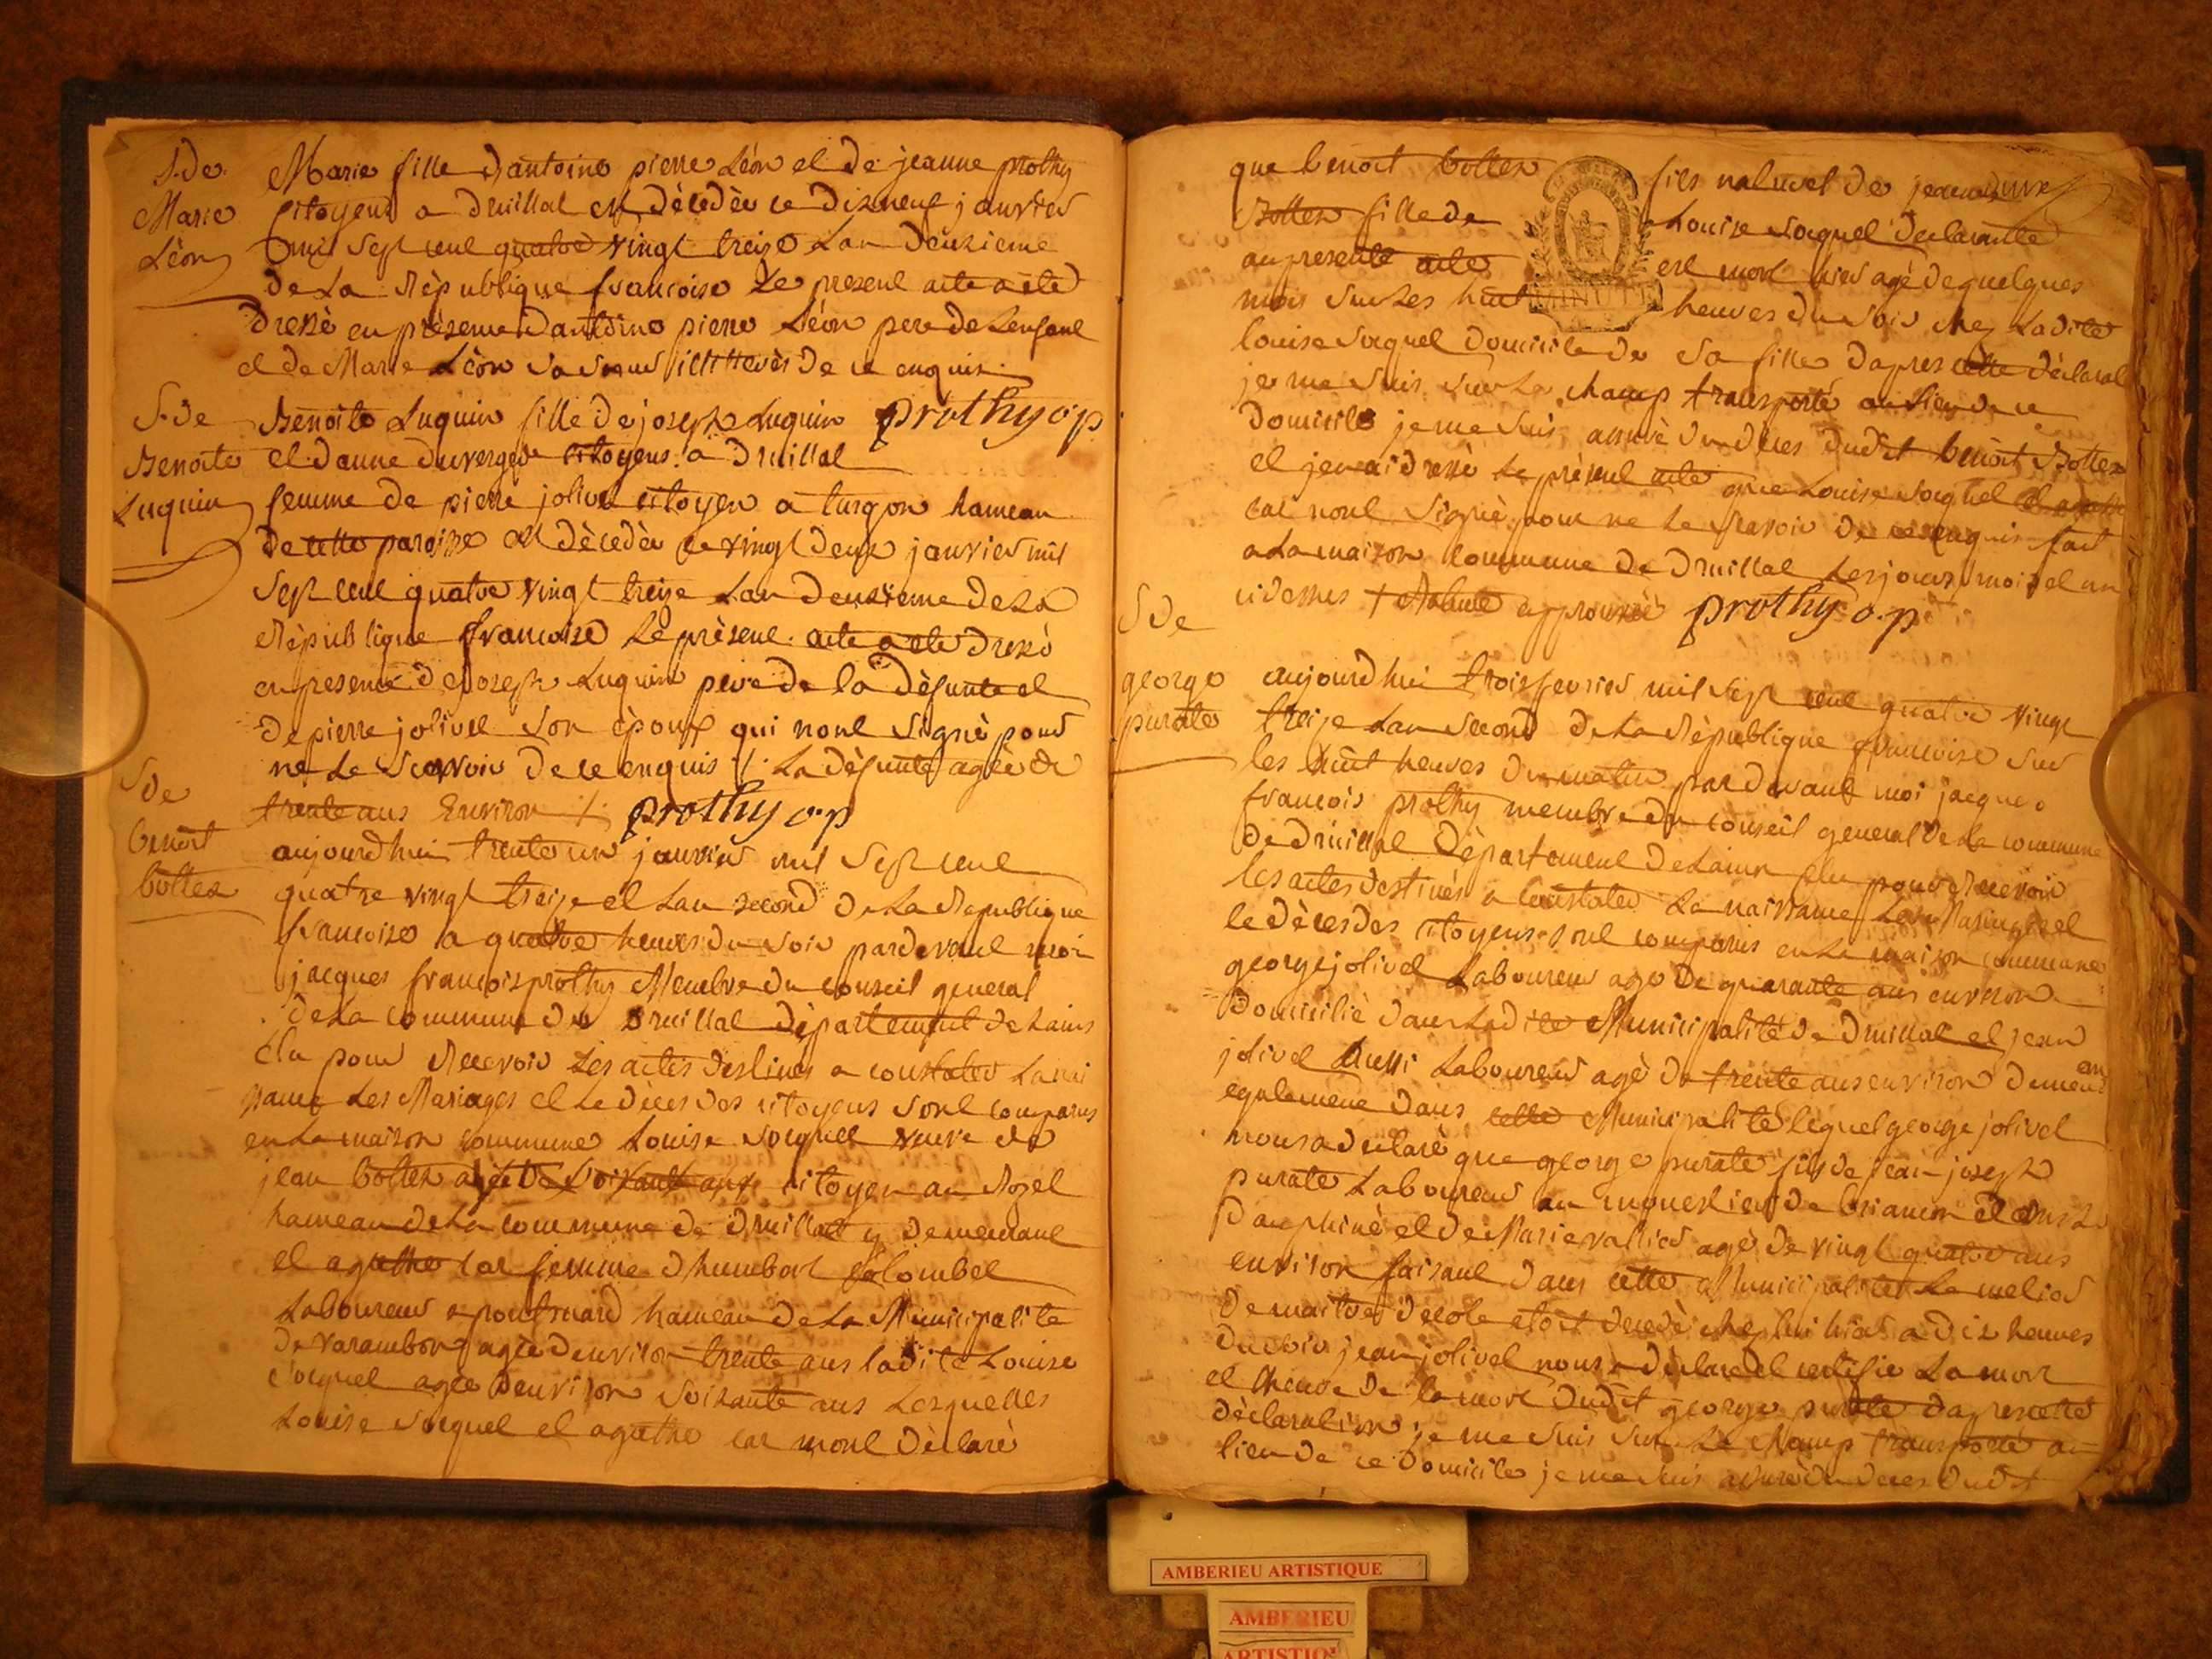 S. de
Marie
Léon
Marie fille d'antoine pierre Léon et de jeanne prothy
Citoyens a druillat est décédée ce dixneuf janvier
mil sept cent quatre vingt treize Lan deuxieme
de La République francoise Le present acte a eté
dressé en présence dantoine pierre Léon pere de Lenfant
et de Marie Léon sa soeur illitterés de ce enquis.
prothy o.p
S. de
Benoite
Luquin
Benoite Luquin fille de joseph Luquin
et danne duverger citoyens a druillat
femme de pierre jolivet citoyen a turgon hameau
de cette paroisse est décédée ce vingt deux janvier mil
sept cent quatre vingt treize Lan deuxieme de La
République francoise Le présent acte a eté dressé
en presence de joseph Luquin pere de la défunte et
de pierre jolivet son époux qui nont signé pour
ne Le scavoir de ce enquis /. La défunte agée de
trente ans Environ /. prothy o.p
S de
benoit
bottex
aujourdhui trente un janvier mil sept cent
quatre vingt treize et Lan second de La Republique
francoise a quatre heures du soir pardevant moi
jacques francois prothy Membre du conseil general
de La commune de druillat département de Lains
élu pour Recevoir Les actes destinés a constater La nai
ssance Les Mariages et Le déces des citoyens sont comparus
en La maison commune Louise socquet veuve de
jean bottex agée de soixante ans citoyen au Rozet
hameau de La commune de druillat y demeurant
et agathe car femme dhumbert Colombet
Laboureur a hameau de La Municipalité
de varambon agée denviron trente ans ladite Louise
socquet agée denviron soixante ans Lesquelles
Louise socquet et agathe car mont déclaré
que benoit bottex fils naturel de jeanne
Bottex fille de Louise socquet declarante
au presente acte est mort hier agé de quelques
mois sur Les huit heures du soir chez Ladite
MINUTE
louise socquet domicile de sa fille dapres cette déclarat
je me suis sur Le champ transporté au Lieu de ce
domicile je me suis assuré du déces dudit benoit Bottex
et jen ai dressé Le présent acte que Louise socquet et agathe
car nont signé pour ne Le scavoir de ce enquis fait
a La maison commune de druillat Les jours mois et an
cidessus + approuvé prothy o.p
S de
george
purate
aujourdhui trois fevrier mil sept cent quatre vingt
treize Lan second de La République francoise sur
les huit heures du matin pardevant moi jacque
francois prothy membre du conseil general de La commune
de druillat Département de Lains élu pour Recevoir
les actes destinés a Constater La naissance Les Mariages et
le déces des citoyens sont comparus en La maison commune
george jolivet Laboureur agé de quarante ans environ
domicilié dans Ladite Municipalité de druillat et jean
jolivet Aussi Laboureur agé de trente ans environ demeu
egalement dans cette Municipalité lequel george jolivet
nous a declaré que george purate fils de jean joseph
purate Laboureur au monestier de briancon et dans Le
dauphiné et de Marie vallier agé de vingt quatre ans
environ faisant dans cette Municipalité Le metier
de maitre décole etoit decedé chez lui hier a dix heures
du soir jean jolivet nous a déclaré et certifie La mort
et lheure de la mort dudit george purate dapres cette
déclaration je me suis sur Le champ transporté au
lieu de ce domicile je me suis assuré du déces dudit
AMBERIEU ARTISTIQUE
AMBERIEU
ARTISTIQ